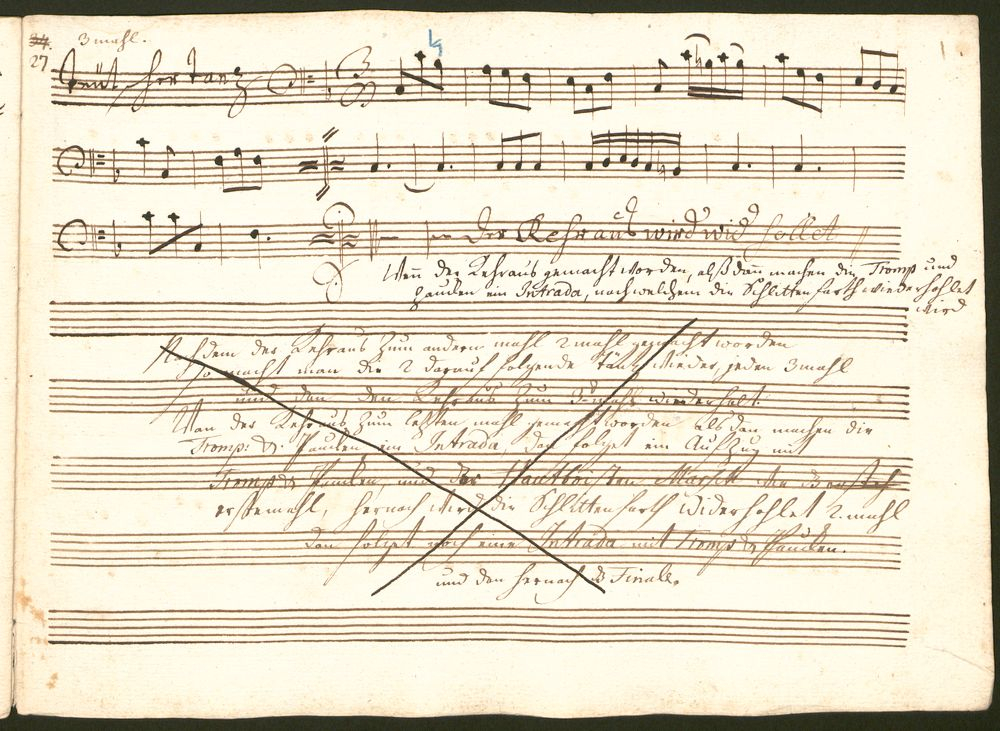 34. 3 mahl.
27
Teütscher Tanz
Der Kehraus wird wid follet
Wen der Kehraus gemacht worden, alß dan machen die Tromp und
Paucken ein Intrada, nach welchem die Schlittenfarth wiederhohlet
wird
Nachdem der Kehraus zum andern mahl 2 mahl gemacht worden
so macht man die 2 darauf folgende täntz wieder, jeden 3 mahl
und dan den Kehraus zum 3 mahl wiederholt.
Wan der Kehraus zum letzten mahl gemacht worden als dan machen die
Tromp: & Paucken ein Intrada, dan folget ein Aufzug mit
Tromp & Paucken, und der Hautboisten Marsch wie das
erstemahl, hernach wird die Schlittenfarth widerhohlet 2 mahl
dan folget noch eine Intrada mit Tromp & Paucken.
und dan hernach das Finale.